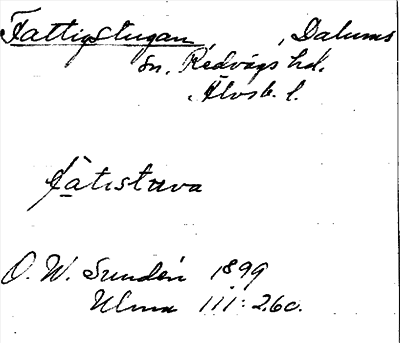 Fattigstugan, Dalums
sn, Redvägs hd.
Älvsb. l.
fàtıstuva
O. W. Sundén 1899
Ulma III: 260.